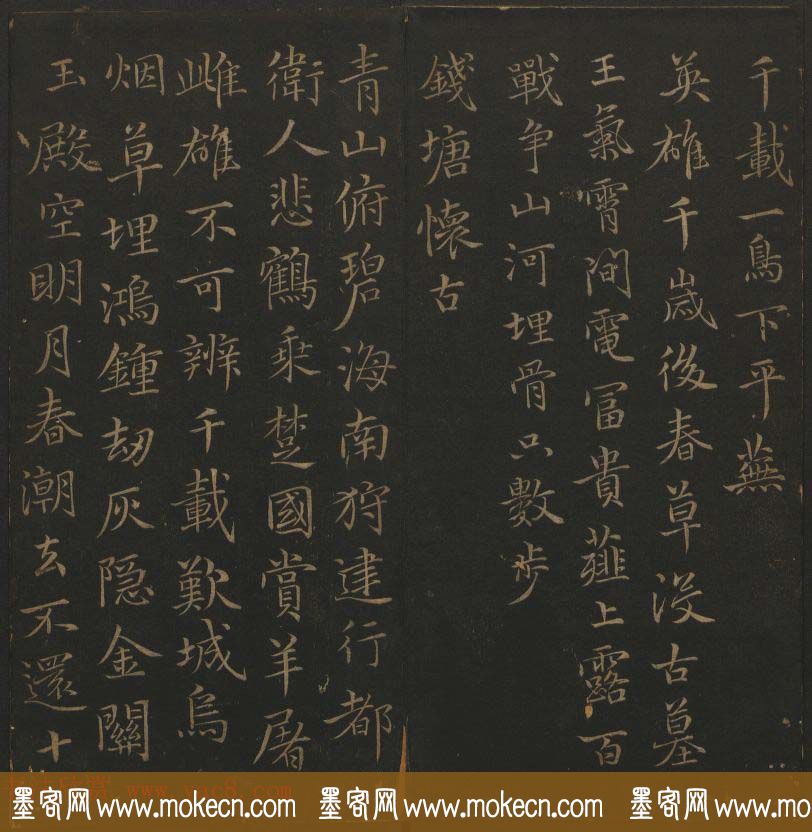 千載一鳥下平蕪
英雄千歲後春草沒古墓
王氣霄間電冨貴薤上露百
戰爭山河埋骨只數步
錢塘懷古
青山俯碧海南狩建行都
衛人悲鶴乘楚國賞羊屠
雌雄不可辨千載歎城烏
烟草埋鴻鍾劫灰隐金關
玉殿空明月春潮去不還十
墨客网 www.mokecn.com 墨客网 www.mokecn.com 墨客网 www.mokecn.com